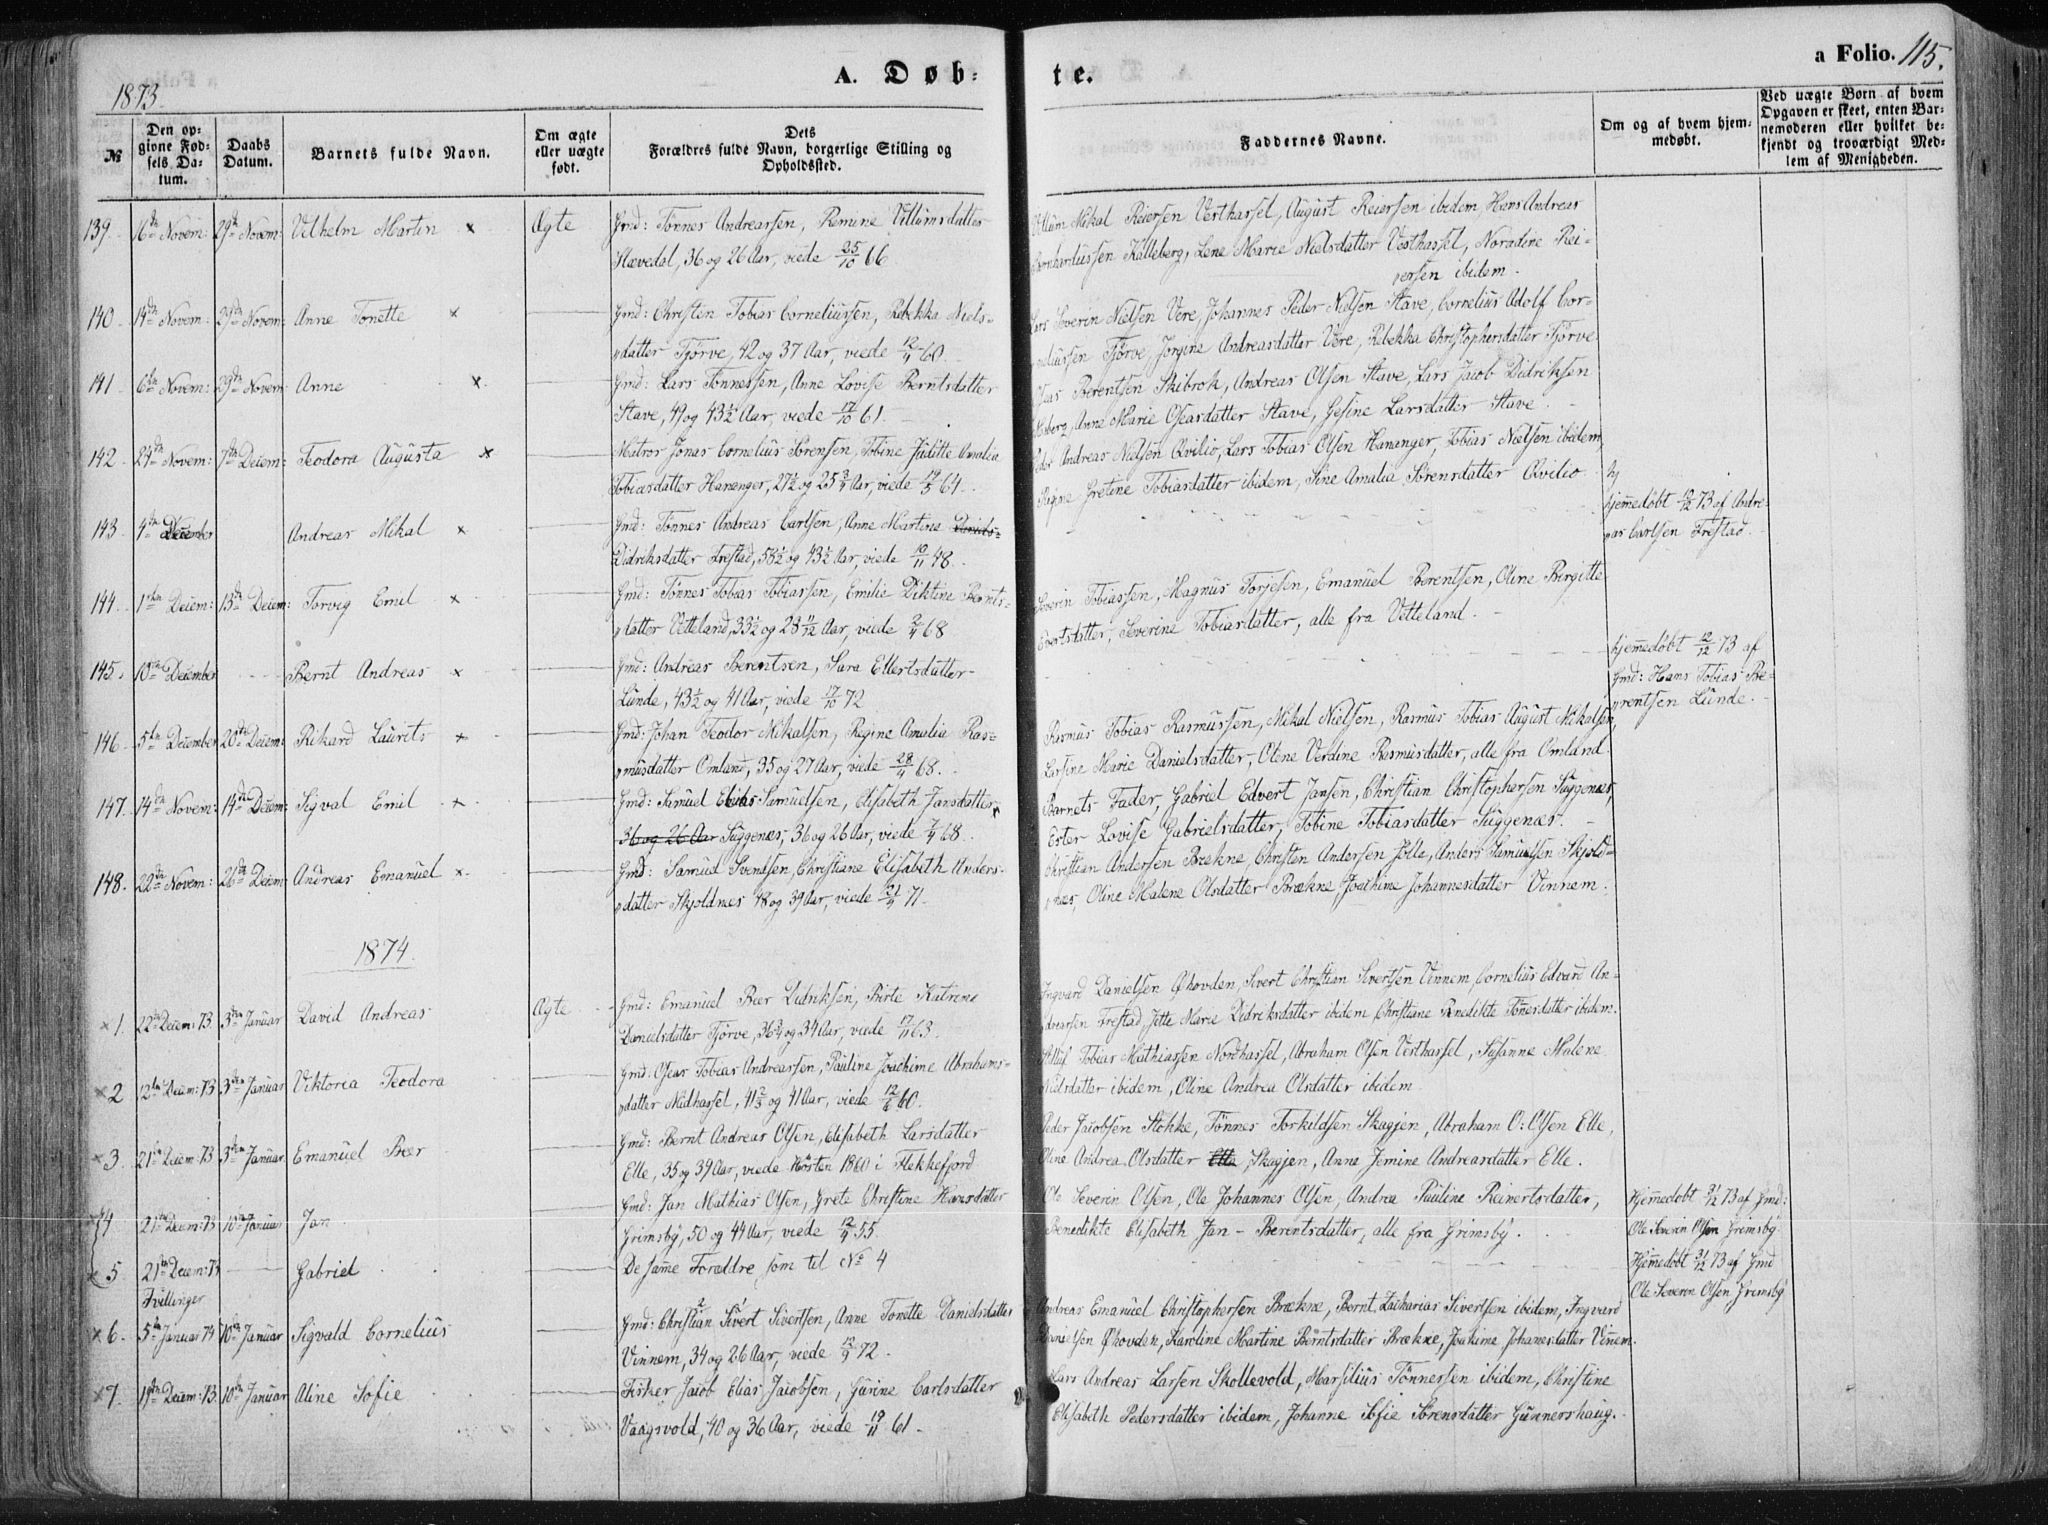 A. Døb-
te.
a Folio. 115.
1873.
№
Den op-
givne Fød-
sels Da-
tum.
Daabs
Datum.
Barnets fulde Navn.
Om ægte
eller uægte
født.
Dets
Forældres fulde Navn, borgerlige Stilling og
Opholdssted.
Faddernes Navne.
Om og af hvem hjem-
medøbt.
Ved uægte Børn af hvem
Opgaven er skeet, enten Bar-
nemoderen eller hvilket be-
kjendt og troværdigt Med-
lem af Menigheden.
139. 16de Novem: 29de Novem: Vilhelm Martin x Ægte Gmd: Tønnes Andreassen, Remine Villumsdatter
Stavedal, 36 og 26 Aar, viede 25/10 66.
Villum Mikal Reiersen Vesthassel, August Reiersen ibidem, Hans Andreas
Bernhardussen Kalleberg, Lene Marie Nielsdatter Vesthassel, Noradine Rei-
ersen ibidem.
140. 14de Novem: 29de Novem: Anne Tonette x Gmd: Christen Tobias Corneliussen, Rebekka Niels-
datter Tjørve, 42 og 37 Aar, viede 12/11 60.
Lars Severin Nielsen Vere, Johannes Peder Nielsen Stave, Cornelius Adolf Cor-
neliussen Tjørve, Jorgine Andreasdatter Vere, Rebekka Christophersdatter Tjørve
141. 6te Novem: 29de Novem Anne x Gmd: Lars Tønnessen, Anne Lovise Berntsdatter
Stave, 49 og 43½ Aar, viede 17/10 61.
Oseas Berentsen Skibrok, Andreas Olsen Stave, Lars Jacob Didriksen
Anne Marie Oseasdatter Stave, Gesine Larsdatter Stave.
142. 24de Novem: 7de Decem: Teodora Augusta x Matros Jonas Cornelius Sørensen, Tobine Juditte Amalia
Tobiasdatter Hananger, 27½ og 25¾ Aar, viede 19/5 64.
Peder Andreas Nielsen Qvilio, Lars Tobias Olsen Hananger, Tobias Nielsen ibidem,
Regine Gretine Tobiasdatter ibidem, Sine Amalia Sørensdatter Qvilio.
143. 4de December Andreas Mikal x Gmd: Tønnes Andreas Carlsen, Anne Martine Daniels-
Didriksdatter Frestad, 58½ og 43½ Aar, viede 10/11 48.
hj
hjemmedøbt 10/12 73 af Andre-
as Carlsen Frestad.
144. 1ste Decem: 13de Decem: Torvig Emil x Gmd: Tønnes Tobias Tobiassen, Emilie Diktine Bernts-
datter Vetteland, 33½ og 28 11/12 Aar, viede 2/4 68
Severin Tobiassen, Magnus Torjesen, Emanuel Berentsen, Oline Birgitte
Evertsdatter, Severine Tobiasdatter, alle fra Vetteland.
145. 10de December Bernt Andreas x Gmd: Andreas Berentsen, Sara Ellertsdatter
Lunde, 43½ og 41 Aar, viede 17/10 72
hjemmedøbt 12/12 73 af
Gmd: Hans Tobias Be-
rentsen Lunde.
146. 5te December 20de Decem: Rikard Laurits x Gmd: Johan Teodor Mikalsen, Regine Amalia Ras-
musdatter Omland, 35 og 27 Aar, viede 28/4 68.
Rasmus Tobias Rasmussen, Mikal Nielsen, Rasmus Tobias August Mikalsen,
Larsine Marie Danielsdatter, Olene Verdine Rasmusdatter, alle fra Omland.
147. 14de Novem: 14de Decem: Sigval Emil x Gmd: Samuel Elias Samuelsen, Elisabeth Jansdatter
36 og 26 Aar Suggenæs, 36 og 26 Aar, viede 7/4 68.
Barnets Fader, Gabriel Edvert Jansen, Christian Christophersen Suggenæs,
Ester Lovise Gabrielsdatter, Tobine Tobiasdatter Suggenæs.
148. 22de Novem: 26de Decem: Andreas Emanuel x Gmd: Samuel Svendsen, Christiane Elisabeth Anders-
datter Skjoldnes 48 og 39 Aar, viede 21/4 71.
Christian Andersen Brækne, Christen Andersen Jolle, Anders Samuelsen Skjold-
næs, Oline Malene Olsdatter Brækne, Joachime Johannesdatter Vinnem.
1874.
x 1. 22de Decem: 73. 3die Januar David Andreas Ægte Gmd: Emanuel Beer Didriksen, Birte Katrine
Danielsdatter Tjørve, 36¾ og 34 Aar, viede 17/11 63.
Ingvard Danielsen Øhovden, Sivert Christian Sivertsen Vinnem, Cornelius Edvard An-
dreassen Frestad, Jette Marie Didriksdatter ibidem Christiane Benedikte Tønnesdatter ibidem.
x 2 12te Decem: 73 3die Januar Viktoria Teodora Gmd: Oseas Tobias Andreassen, Pauline Joachime Abrahams-
datter Midhassel, 41⅔ og 41 Aar, viede 12/6 60.
Tobias Mathiassen Nordhassel, Abraham Olsen Vesthassel, Susanne Malene
Nielsdatter ibidem, Oline Andrea Olsdatter ibidem
x 3. 21de Decem: 73 3die Januar. Emanuel Beer Gmd: Bernt Andreas Olsen, Elisabeth Larsdatter
Elle, 35 og 39 Aar, viede Høsten 1860 i Flekkefjord
Peder Jacobsen Stokke, Tønnes Torkildsen Skagjen, Abraham O: Olsen Elle,
Oline Andrea Olsdatter Elle Skagjen, Anne Jemine Andreasdatter Elle.
x 4 21de Decem: 73 10de Januar Jan Gmd: Jan Mathias Olsen, Grete Christine Hansdatter
Grimsby, 50 og 44 Aar, viede 12/4 55.
Ole Severin Olsen, Ole Johannes Olsen, Andrea Pauline Reinertsdatter,
Benedikte Elisabeth Jan-Berentsdatter, alle fra Grimsby.
Hjemmedøbt 21/12 73 af Gmd:
Ole Severin Olsen Grimsby.
x 5 21de Decem: 73 Gabriel De samme Forældre som til № 4
Tvillinger
Hjemmedøbt 21/12 73 af Gmd
Ole Severin Olsen Grimsby
x 6. 5te Januar 74 10de Januar Sigvald Cornelius Gmd: Christian Sivert Sivertsen, Anne Tonette Danielsdatter
Vinnem, 34 og 26 Aar, viede 13/9 72.
Andreas Emanuel Christophersen Brækne, Bernt Zacharias Sivertsen ibidem, Ingvard
Danielsen Øhovden, Karoline Martine Berntsdatter Brækne, Joakime Johannesdatter Vinnem.
x 7. 19de Decem: 73. 10de Januar Aline Sofie Fisker Jacob Elias Jacobsen, Gurine Carlsdatter
Vaagsvold, 40 og 36 Aar, viede 19/11 61.
Lars Andreas Larsen Skollevold, Marsilius Tønnersen ibidem, Christine
Elisabeth Pedersdatter ibidem, Johanne Sofie Sørensdatter Gunnershaug.